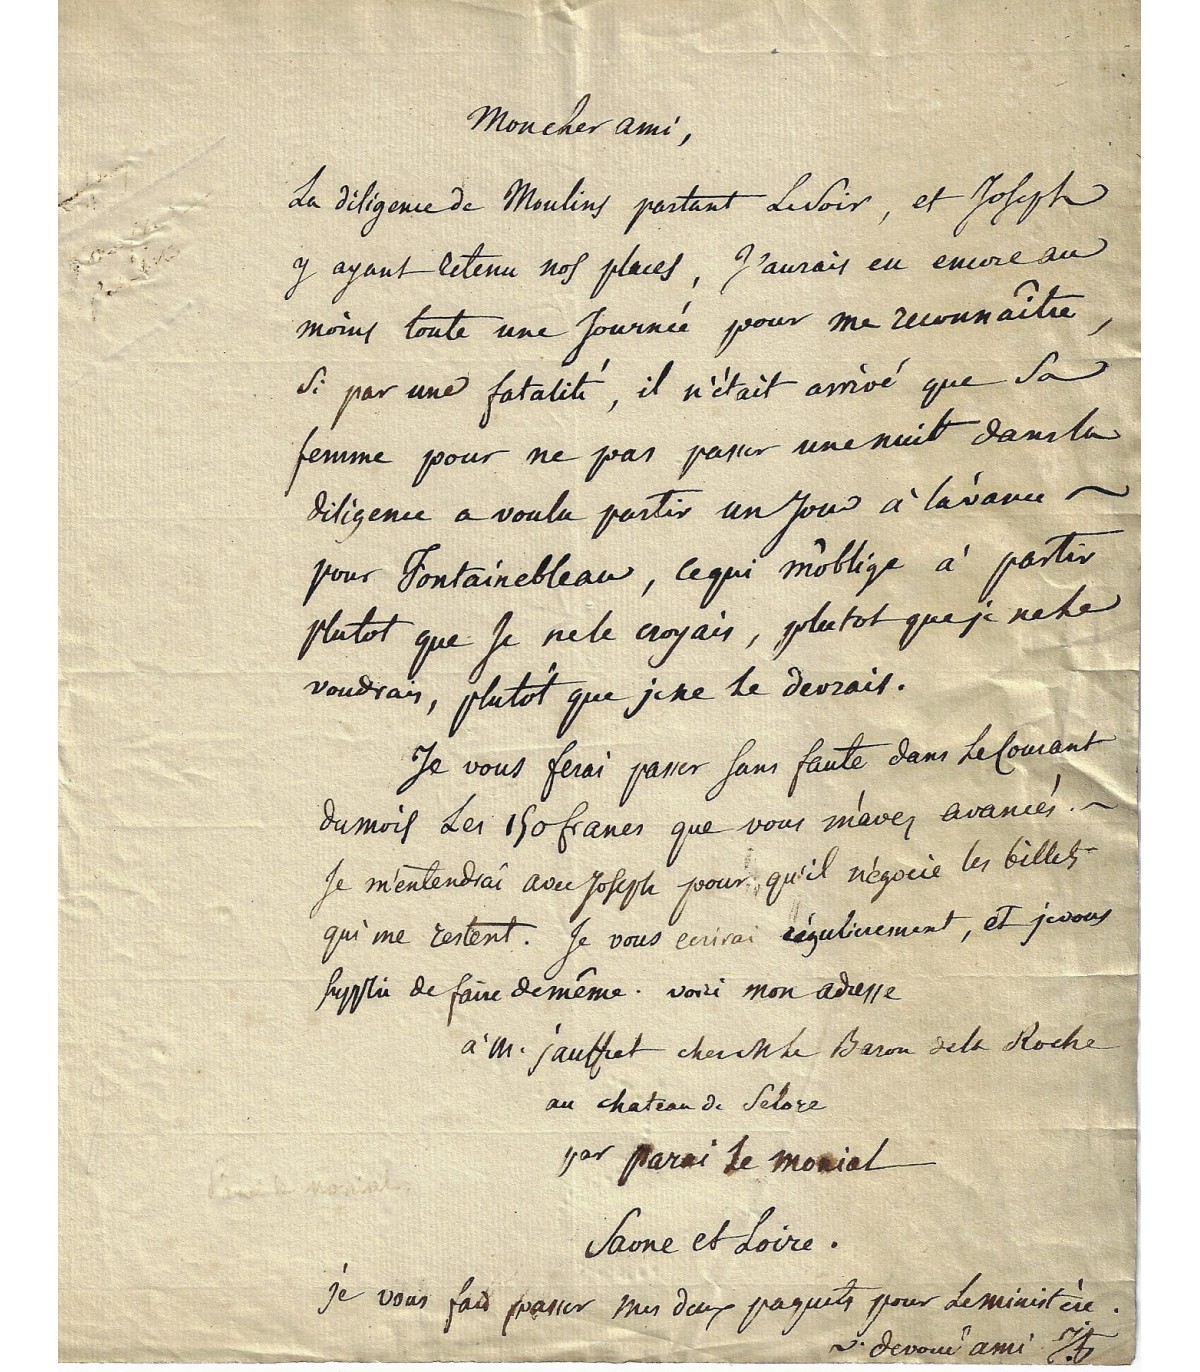 Mon cher ami,
La diligence de Moulins partant le soir, et Joseph
y ayant retenu nos places, J'aurais eu encore au
moins toute une Journée pour me reconnaître,
Si par une fatalité, il n'était arrivé que Sa
femme pour ne pas passer une nuit dans la
diligence a voulu partir un Jour à l'avance ~
pour Fontainebleau, ce qui m'oblige à partir
plutot que Je ne le croyais, plutot que je ne le
voudrais, plutôt que je ne le devrais.
Je vous ferai passer sans faute dans le Courant
du mois les 150 francs que vous m'avez avancés. ~
Je m'entendrai avec Joseph pour qu'il négocie les billets
qui me restent. Je vous ecrirai régulierement, et je vous
supplie de faire de même. voici mon adresse
à M. jauffret chez M le Baron de la Roche
au chateau de Selore
par parai le monial
Saone et Loire.
je vous fais passer mes deux paquets pour le ministère.
v. devoué ami
parai le monial